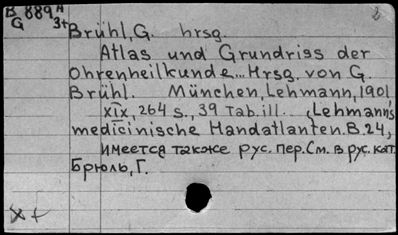 B 889 A
G 3+
Brühl, G. hrsg.
Atlas und Grundriss der
Ohrenheilkunde... Hrsg. von G.
Brühl. München, Lehmann, 1901
XIX, 264 s., 39 Tab. ill. (Lehmann's
medicinische Handatlanten. B. 24,
имеется также рус. пер. См. в рус. кат.
Брюль, Г.